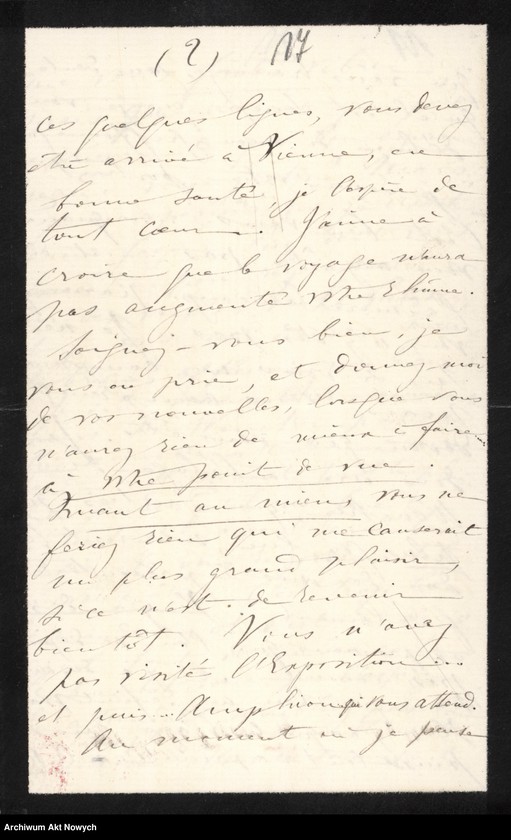 (2) 17
ces quelques lignes, vous devez
être arrivé à Vienne, en
bonne santé, je l'espère de
tout cœur. J'aime à
croire que le voyage n'aura
pas augmenté votre rhume.
Soignez-vous bien, je
vous en prie, et donnez-moi
de vos nouvelles, lorsque vous
n'aurez rien de mieux à faire
à votre point de vue.
Quant au mien, vous ne
feriez rien qui me causerait
un plus grand plaisir,
si ce n'est de revenir
bientôt. Vous n'avez
pas visité l'Exposition...
et puis... Amphion qui vous attend.
Au moment où je pense
Archiwum Akt Nowych